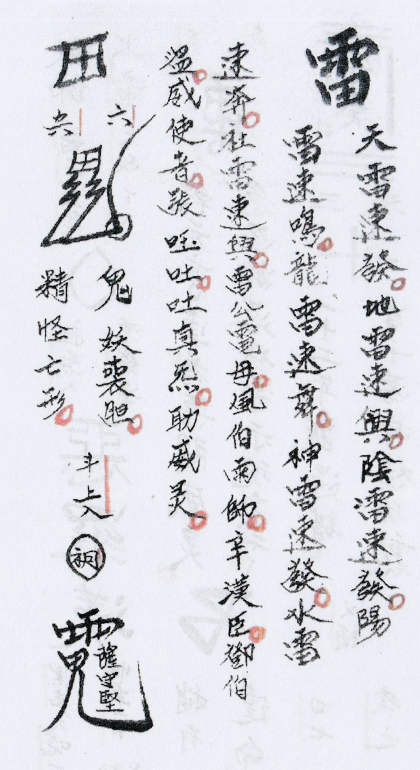 雷
天雷速發地雷速興陰雷速發陽
雷速鳴龍雷速舞神雷速發水雷
速奔社雷速興雷公電母風伯雨師辛漢臣鄧伯
溫威使者張 吐吐真炁助威灵
六 鬼妖裘胆
精怪亡形
斗上入